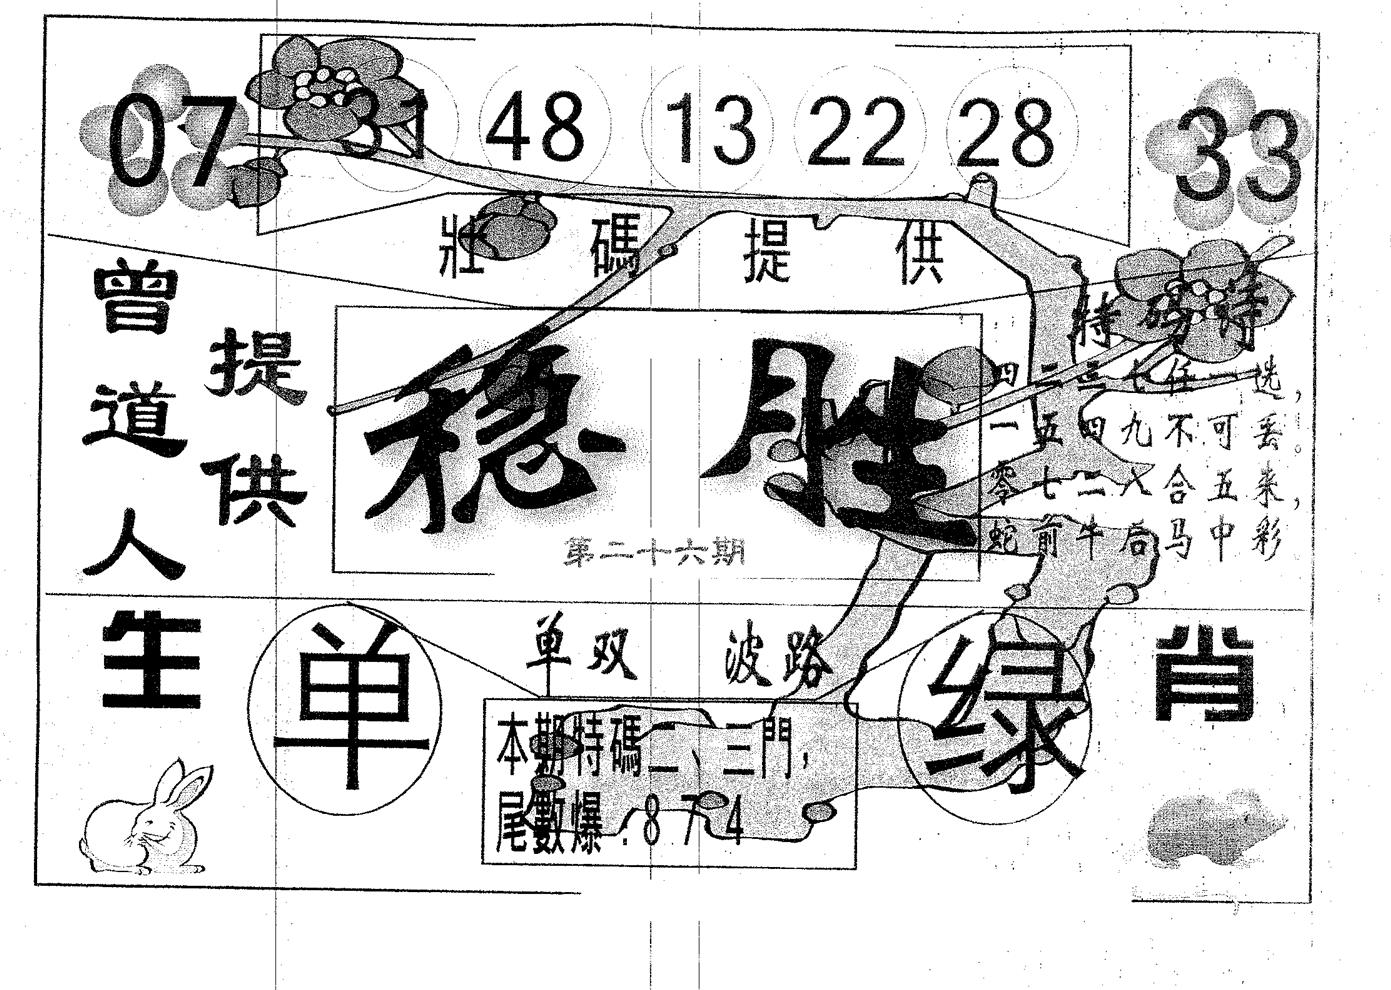 07 31 48 13 22 28 33
壯碼提供
曾道人
提供
稳胜
第二十六期
特码诗
四二三七任一选，
一五四九不可丢。
零七二八合五来，
蛇前牛后马中彩
生
单
单双 波路
绿
肖
本期特碼二、三門，
尾數爆：8 7 4